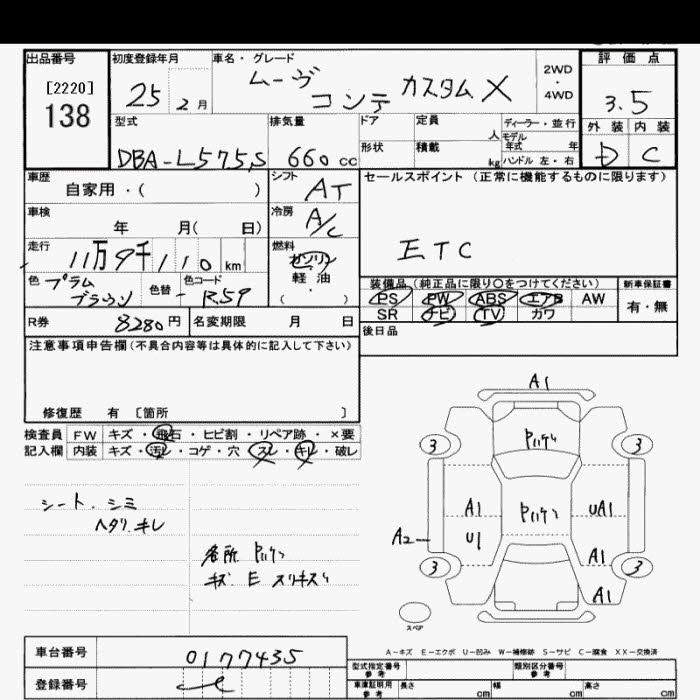 出品番号
[2220]
138
初度登録年月
25 2月
車名・グレード
ムーヴ コンテ カスタム X
2WD
・
4WD
評価点
3.5
外装 内装
D C
型式
DBA-L575S
排気量
660 cc
ドア
形状
定員
人
積載
kg
ディーラー・並行
モデル
年式 年
ハンドル 左・右
車歴
自家用・( )
シフト
AT
セールスポイント (正常に機能するものに限ります)
ETC
車検
年 月( 日)
冷房
A/C
走行
11万9千110 km
燃料
ガソリン
軽油
・
( )
色
プラム
ブラウン
色替
-
色コード
R59
装備品(純正品に限り○をつけてください)
PS PW ABS エアB AW
SR ナビ TV カワ
新車保証書
有・無
R券 8280円
名変期限 月 日
後日品
注意事項申告欄(不具合内容等は具体的に記入して下さい)
修復歴 有 〔箇所 〕
検査員 FW キズ・飛石・ヒビ割・リペア跡・×要
記入欄 内装 キズ・汚レ・コゲ・穴・スレ・キレ・破レ
シート、シミ
ヘタリ.キレ
各所
キズ E スリキズ
A1
3 3
A1 UA1
U1
A2
A1
3 3
A1
スペア
A-キズ E-エクボ U-凹み W-補修跡 S-サビ C-腐食 XX-交換済
車台番号 0177435
登録番号
型式指定番号
参考
類別区分番号
参考
車庫証明用
参考
長さ cm 幅 cm 高さ cm